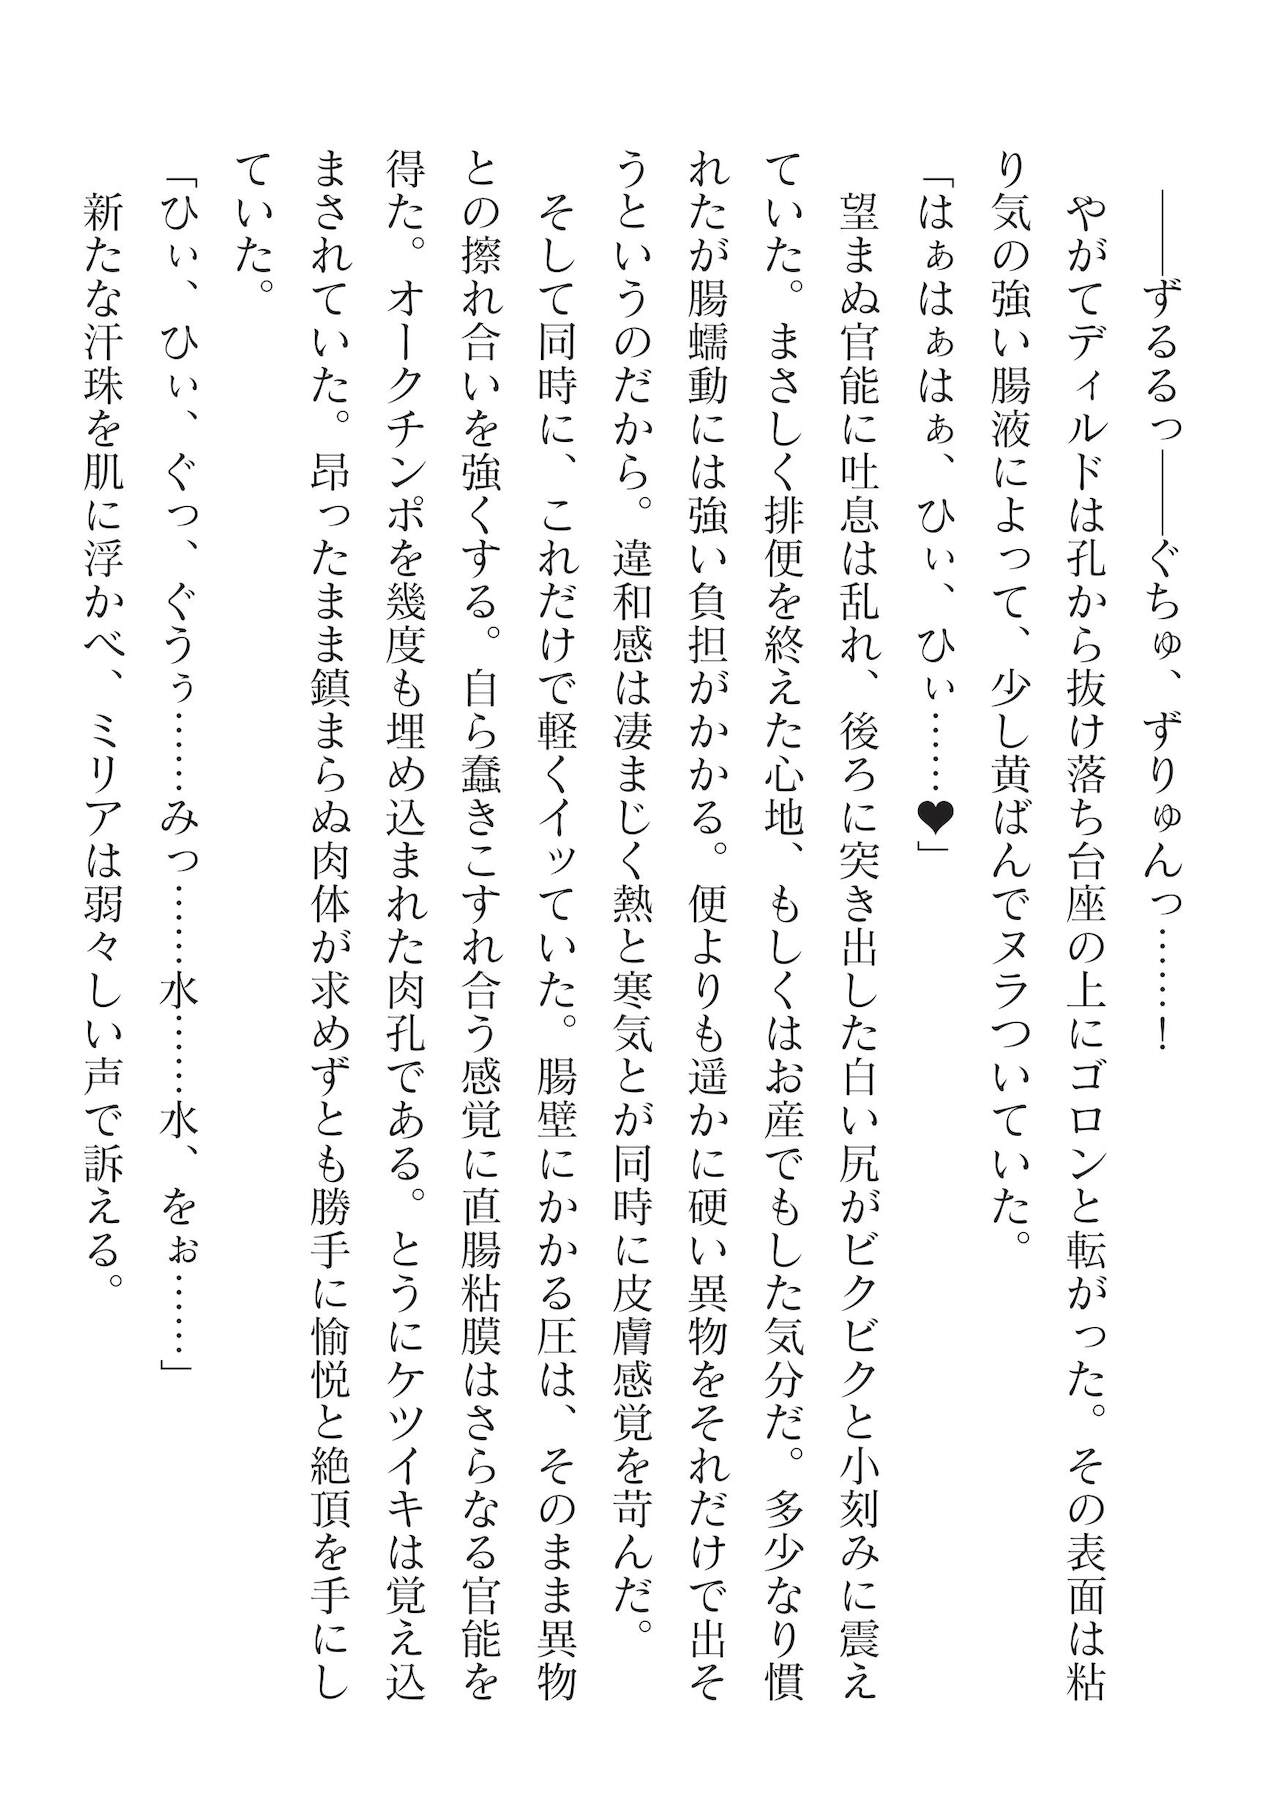 ――ずるるっ――ぐちゅ、ずりゅんっ……！
やがてディルドは孔から抜け落ち台座の上にゴロンと転がった。その表面は粘
り気の強い腸液によって、少し黄ばんでヌラついていた。
「はぁはぁはぁ、ひぃ、ひぃ……♥」
望まぬ官能に吐息は乱れ、後ろに突き出した白い尻がビクビクと小刻みに震え
ていた。まさしく排便を終えた心地、もしくはお産でもした気分だ。多少なり慣
れたが腸蠕動には強い負担がかかる。便よりも遥かに硬い異物をそれだけで出そ
うというのだから。違和感は凄まじく熱と寒気とが同時に皮膚感覚を苛んだ。
そして同時に、これだけで軽くイッていた。腸壁にかかる圧は、そのまま異物
との擦れ合いを強くする。自ら蠢きこすれ合う感覚に直腸粘膜はさらなる官能を
得た。オークチンポを幾度も埋め込まれた肉孔である。とうにケツイキは覚え込
まされていた。昂ったまま鎮まらぬ肉体が求めずとも勝手に愉悦と絶頂を手にし
ていた。
「ひぃ、ひぃ、ぐっ、ぐうぅ……みっ……水……水、をぉ……」
新たな汗珠を肌に浮かべ、ミリアは弱々しい声で訴える。